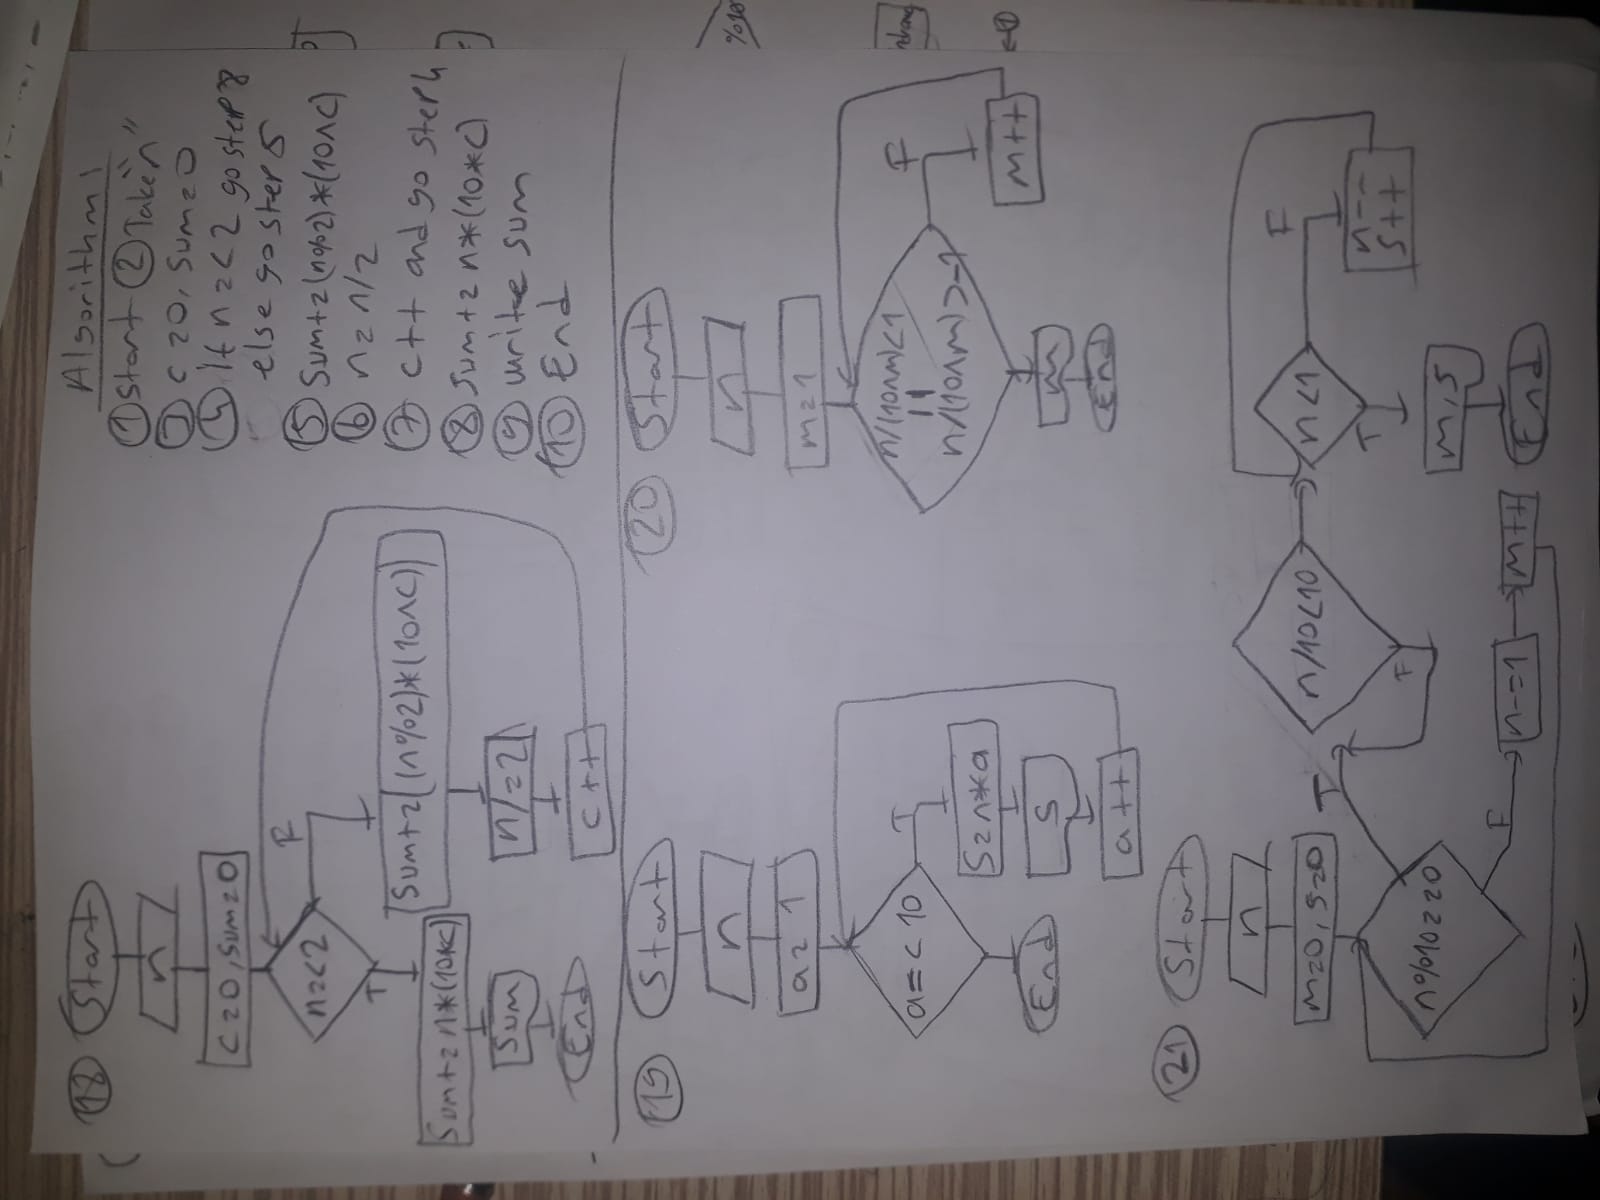 18 Start
n
c=0, sum=0
n=<2
F
T
Sum+=((n%2)*(10^c))
Sum+=n*(10*c)
n/=2
Sum
c++
End
Algorithm:
1 Start 2 Take "n"
3 c=0, sum=0
4 if n=<2 go step 8
else go step 5
5 Sum+=(n%2)*(10^c)
6 n=n/2
7 c++ and go step 4
8 Sum+=n*(10*c)
9 write sum
10 End
19 Start
n
a=1
a=<10
T
S=n*a
S
a++
End
20 Start
n
m=1
n/(10^m)<1
||
n/(10^m)>-1
F
m++
m
End
21 Start
n
m=0, s=0
n%10==0
T
F
n-=1
m++
n/10<10
F
n<1
F
n--
s++
T
m,s
End
%10